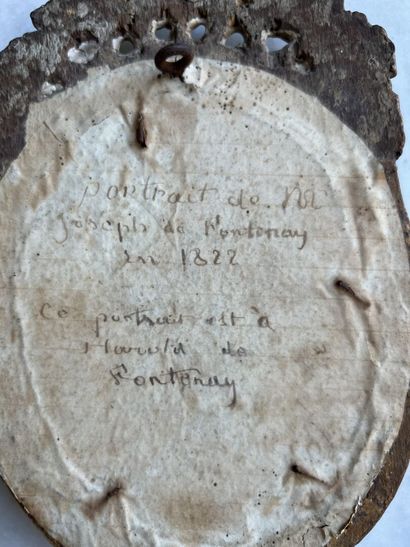 portrait de M
joseph de Fontenay
en 1822
Ce portrait est à
Harold de
Fontenay